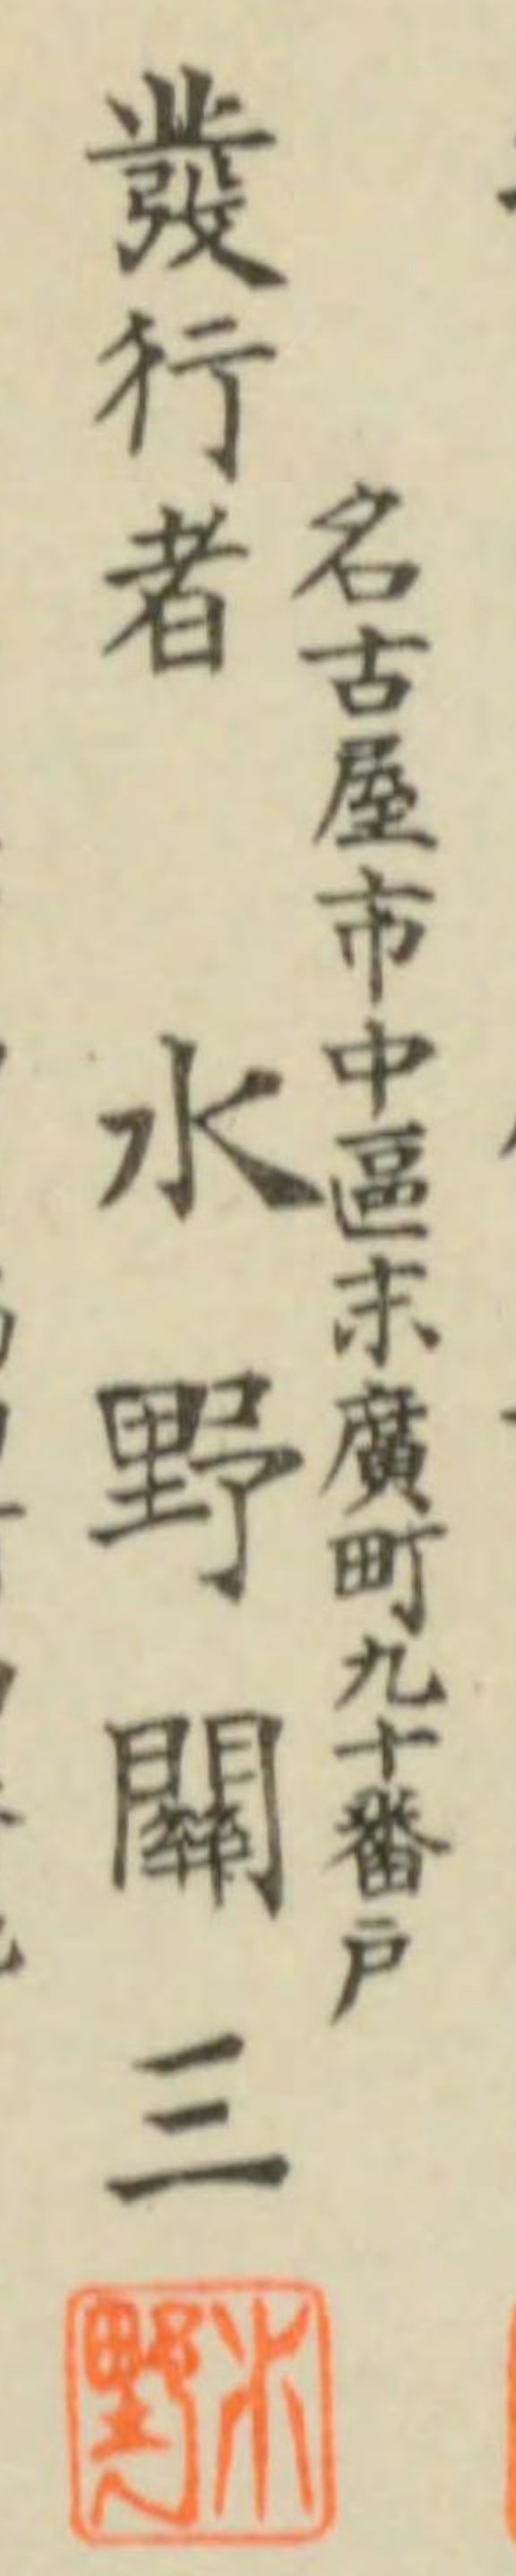 名古屋市中區末廣町九十番戸
發行者 水野關三
水野